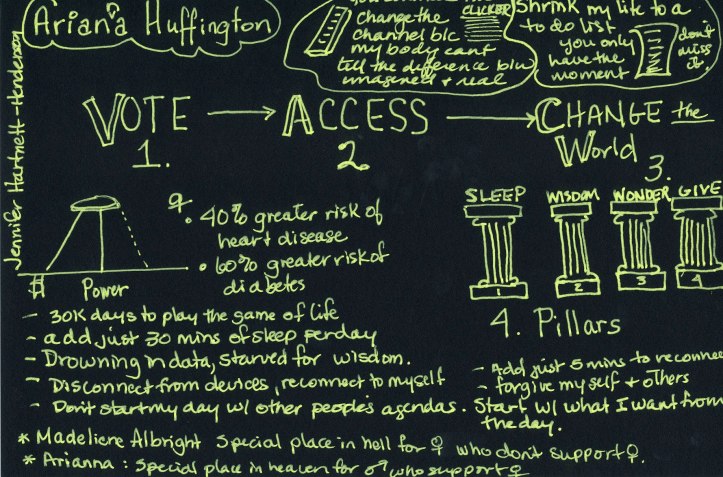 Ariana Huffington
change the
channel b/c
my body cant
tell the difference b/w
imagened + real
Shrink my life to a
to do list
you only
have the
moment
don't
miss
it.
Jennifer Hartnett-Henderson
VOTE → ACCESS → CHANGE the
World
1.
2.
3.
SLEEP
WISDOM
WONDER
GIVE
1
2
3
4
4. Pillars
$
Power
♀
• 40% greater risk of
heart disease
• 60% greater risk of
diabetes
- 30K days to play the game of life
- add just 30 mins of sleep per day
- Drowning in data, starved for wisdom.
- Disconnect from devices, reconnect to myself
- Don't start my day w/ other people's agendas. Start w/ what I want from
the day.
- Add just 5 mins to reconnec
- forgive myself + others
* Madeliene Albright Special place in hell for ♀ who don't support ♀.
* Arianna: Special place in heaven for ♂ who support ♀